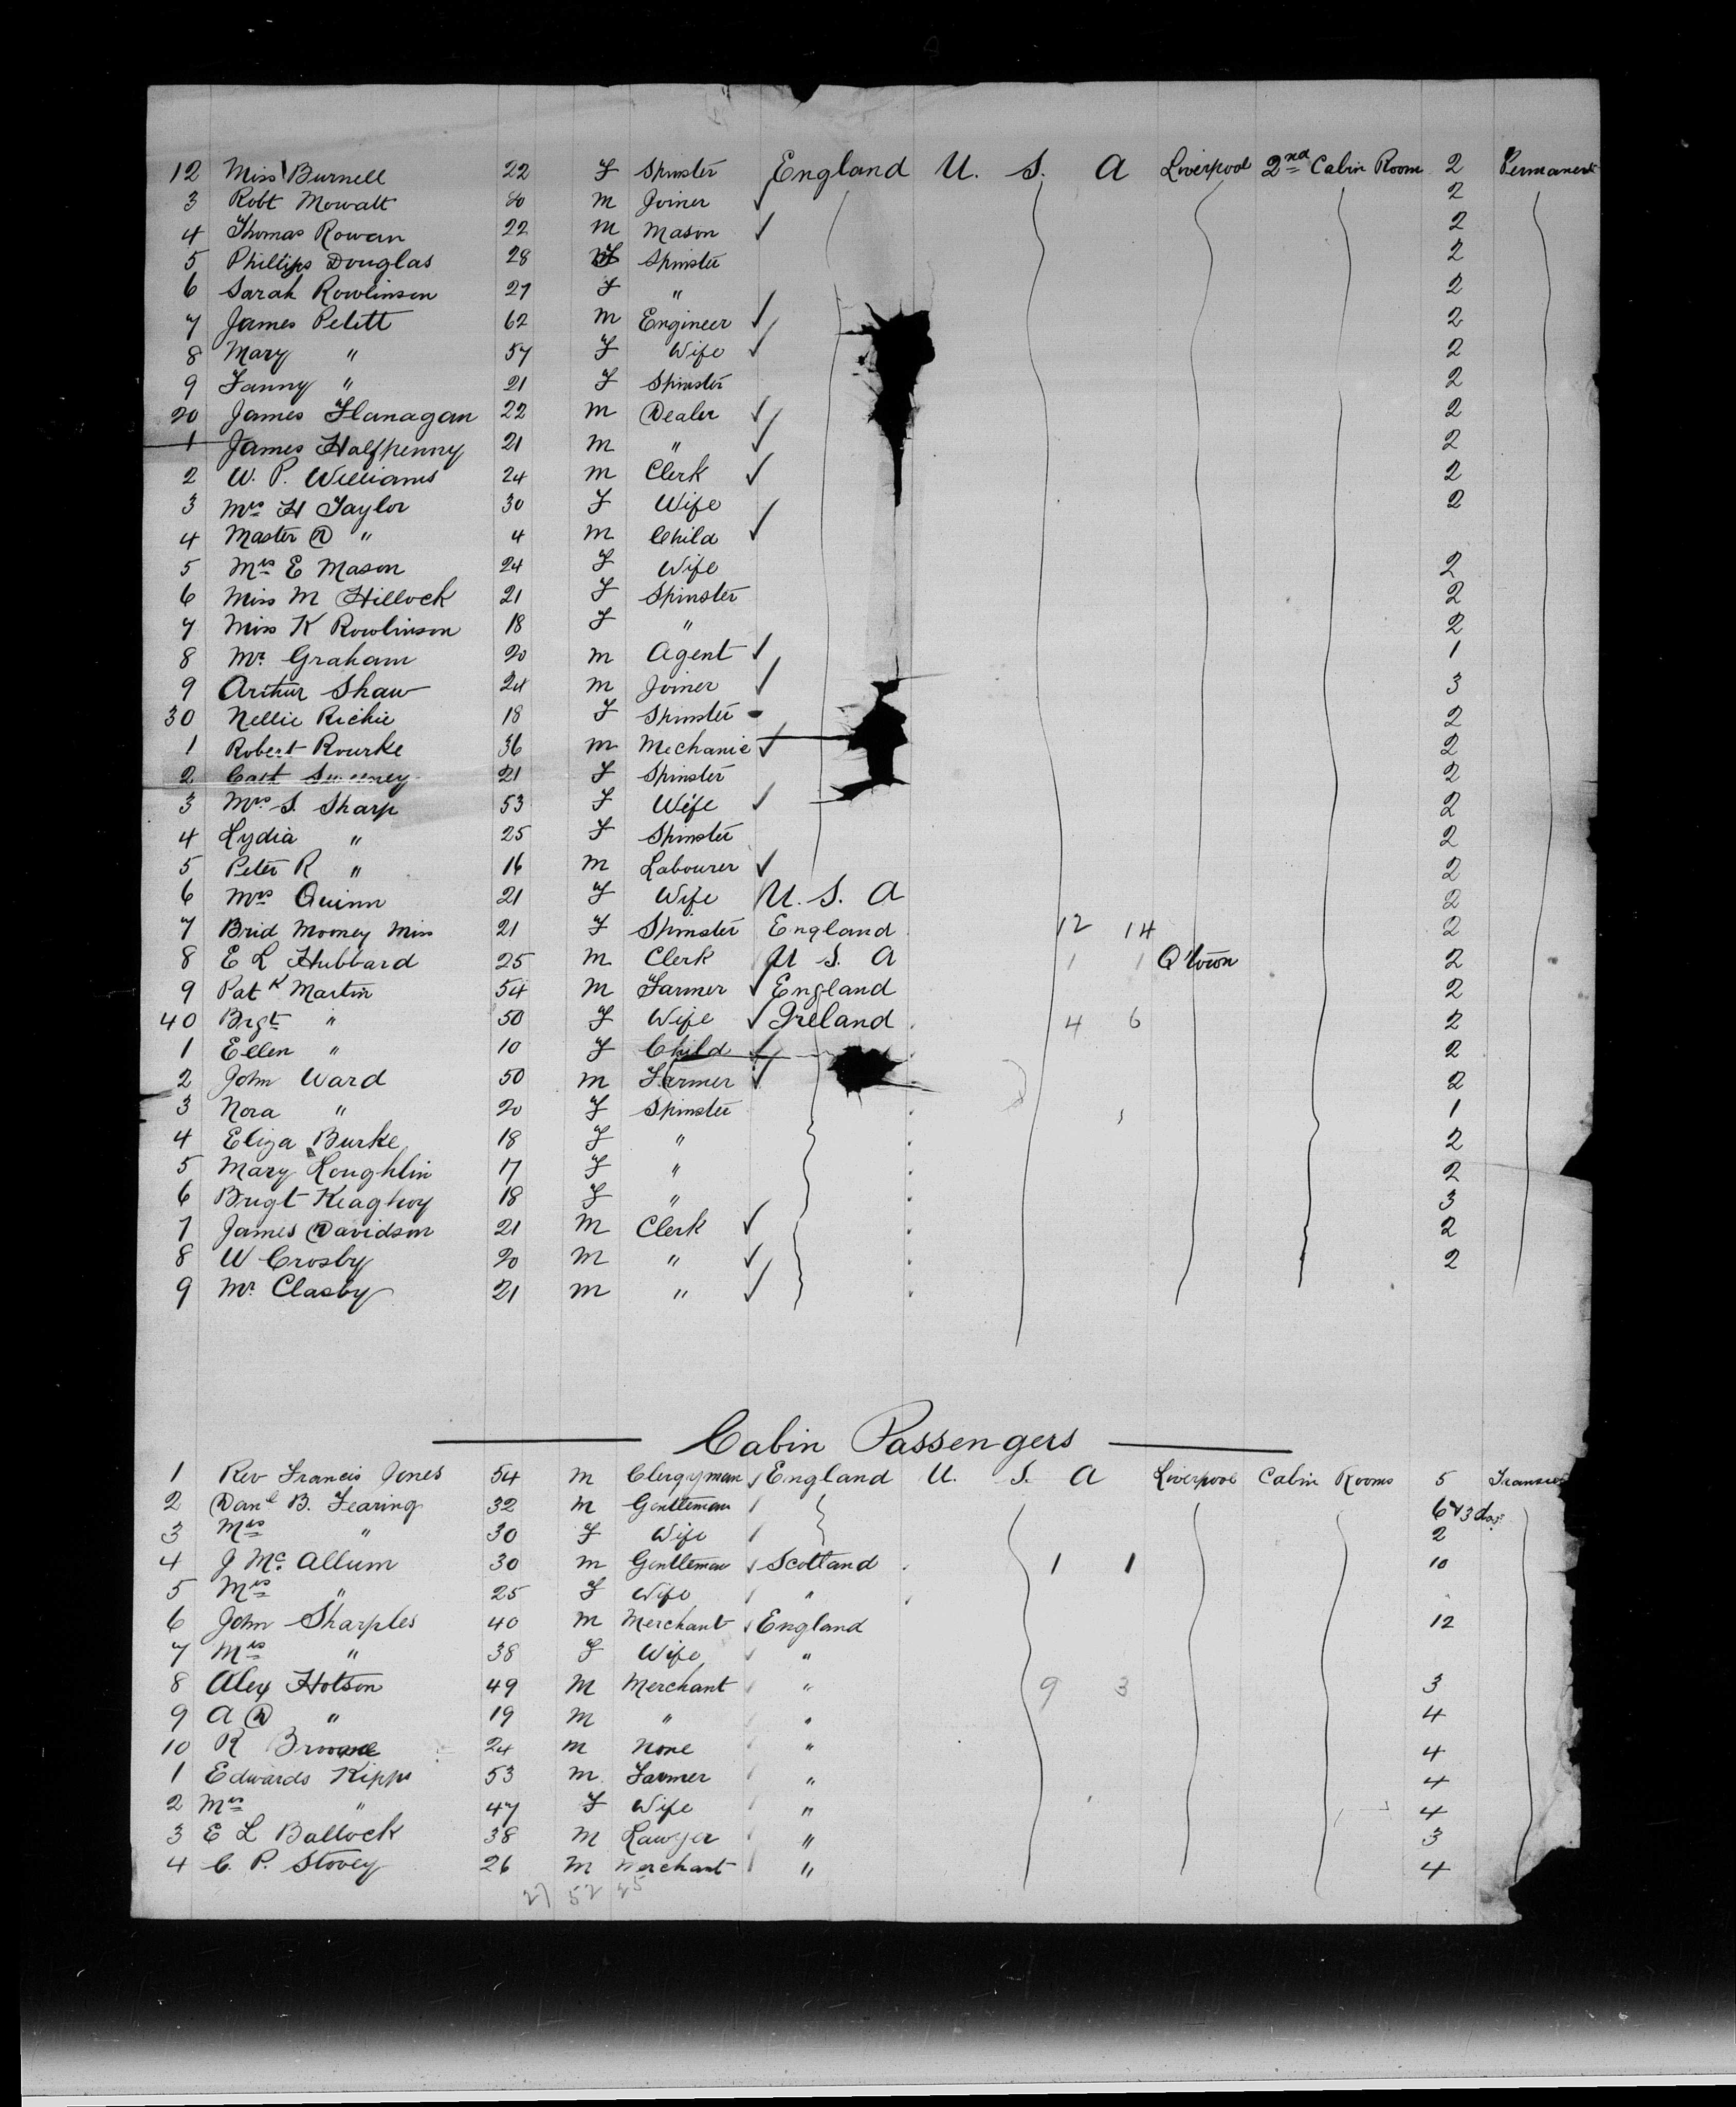 12 Miss Burnell 22 F Spinster England U. S. A Liverpool 2nd Cabin Room 2 Permanent
3 Robt Mowatt M Joiner 2
4 Thomas Rowan 22 M Mason 2
5 Phillips Douglas 28 F Spinster 2
6 Sarah Rowlinson 27 F " 2
7 James Pelitt 62 M Engineer 2
8 Mary " 57 F Wife 2
9 Fanny " 21 F Spinster 2
20 James Flanagan 22 M Dealer 2
1 James Halfpenny 21 M " 2
2 W. P. Williams 24 M Clerk 2
3 Mrs H Taylor 30 F Wife 2
4 Master D " 4 M Child
5 Mrs E Mason 24 F Wife 2
6 Miss M Hillock 21 F Spinster 2
7 Miss K Rowlinson 18 F " 2
8 Mr. Graham 20 M Agent 1
9 Arthur Shaw 24 M Joiner 3
30 Nellie Richie 18 F Spinster 2
1 Robert Rourke 36 M Mechanic 2
2 Cast Sweeney 21 F Spinster 2
3 Mrs S. Sharp 53 F Wife 2
4 Lydia " 25 F Spinster 2
5 Peter R " 16 M Labourer 2
6 Mrs Quinn 21 F Wife U. S. A 2
7 Brid Mooney Miss 21 F Spinster England 12 14 2
8 E L Hubbard 25 M Clerk U S. A 1 1 Q'town 2
9 Patk Martin 54 M Farmer England 2
40 Brgt " 50 F Wife Ireland 4 6 2
1 Ellen " 10 F Child 2
2 John Ward 50 M Farmer 2
3 Nora " 20 F Spinster 1
4 Eliza Burke 18 F " 2
5 Mary Loughlin 17 F " 2
6 Brigt Keaghoy 18 F " 3
7 James Davidson 21 M Clerk 2
8 W Crosby 20 M " 2
9 Mr. Clasby 21 M "
Cabin Passengers
1 Rev Francis Jones 54 M Clergyman England U. S. A Liverpool Cabin Rooms 5
2 Danl B. Fearing 32 M Gentleman 6 & 3
3 Mrs " 30 F Wife 2
4 J Mc. Allum 30 M Gentleman Scotland 1 1 10
5 Mrs " 25 F Wife "
6 John Sharples 40 M Merchant England 12
7 Mrs " 38 F Wife "
8 Alex Hotson 49 M Merchant " 9 3 3
9 A D " 19 M " " 4
10 R Browne 24 M None " 4
1 Edwards Kipps 53 M Farmer " 4
2 Mrs " 47 F Wife " 4
3 E L Ballock 38 M Lawyer " 3
4 C. P. Stovey 26 M Merchant " 4
27 52 25